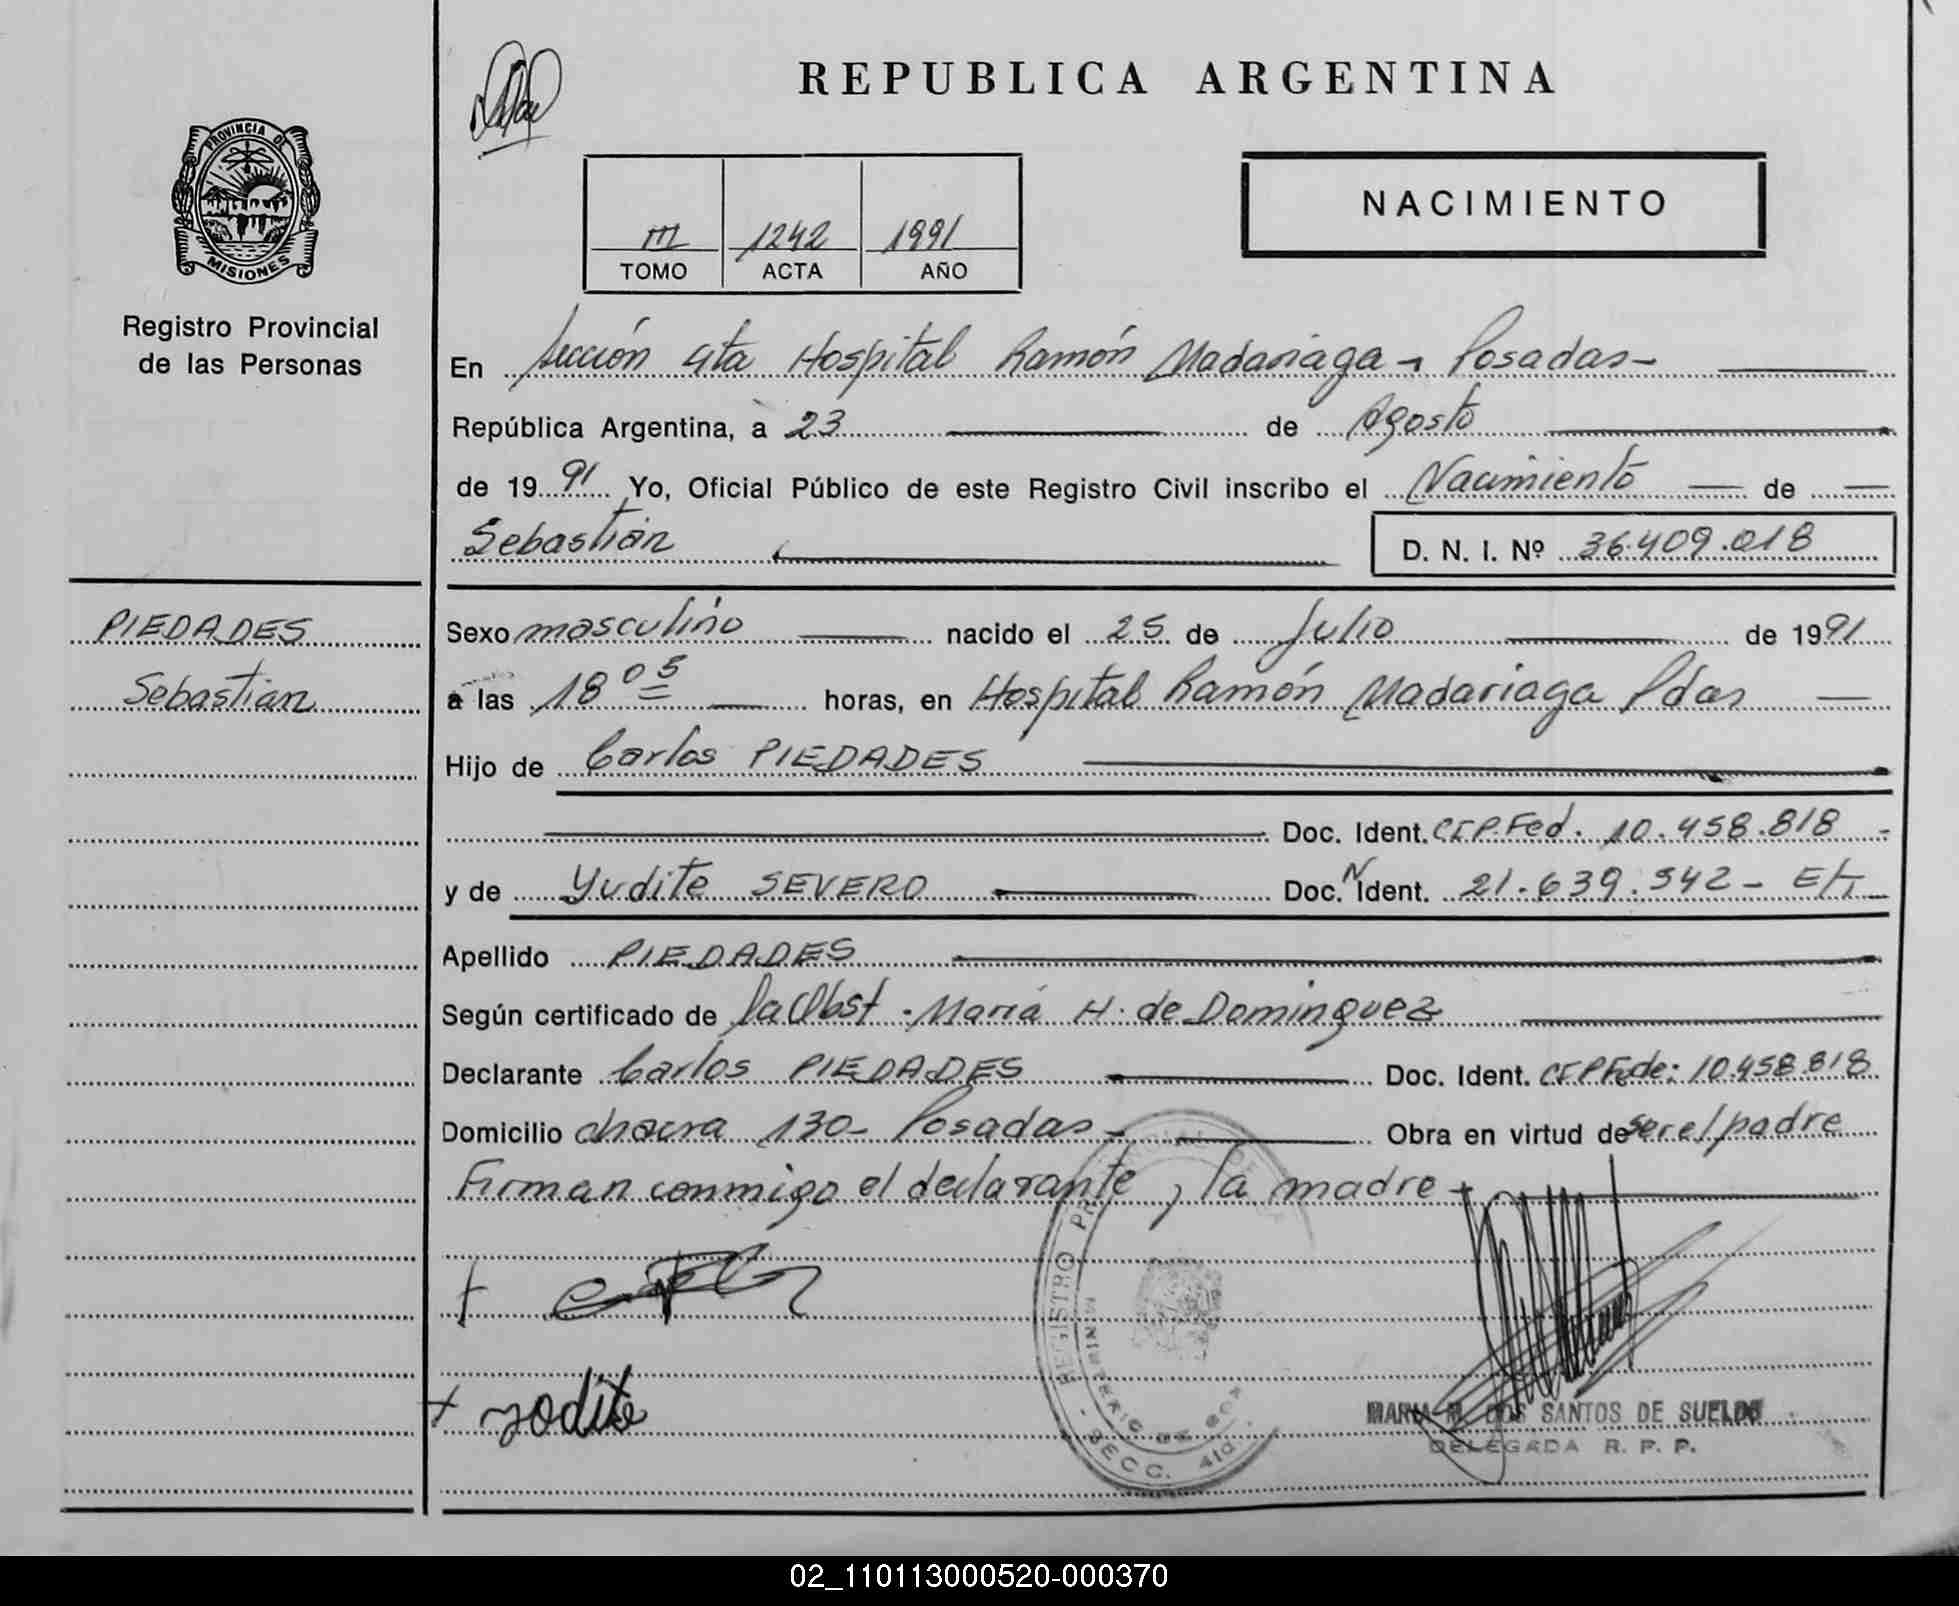 REPUBLICA ARGENTINA
PROVINCIA DE
MISIONES
Registro Provincial
de las Personas
NACIMIENTO
III 1242 1991
TOMO ACTA AÑO
En Sección 4ta Hospital Ramón Madariaga - Posadas -
República Argentina, a 23 de Agosto
de 1991 Yo, Oficial Público de este Registro Civil inscribo el Nacimiento de
Sebastián D. N. I. Nº 36.409.018
PIEDADES
Sebastián
Sexo masculino nacido el 25 de Julio de 1991
a las 18 05 horas, en Hospital Ramón Madariaga Pdas
Hijo de Carlos PIEDADES
Doc. Ident. CIP.Fed. 10.458.818 -
y de Yudite SEVERO Doc. N Ident. 21.639.542 -
Apellido PIEDADES
Según certificado de la Obst. María H. de Dominguez
Declarante Carlos PIEDADES Doc. Ident. CIPFede: 10.458.818
Domicilio chacra 130 - Posadas - Obra en virtud de ser el padre
Firman conmigo el declarante, la madre -
yodite
REGISTRO PROVINCIAL DE
SECC. 4ta.
MARIA M. DOS SANTOS DE SUELDO
DELEGADA R. P. P.
02_110113000520-000370